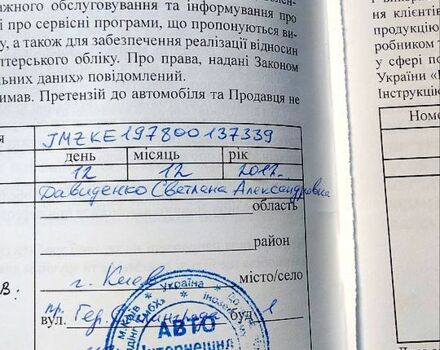 ажного обслуговування та інформування про
і про сервісні програми, що пропонуються ви-
у, а також для забезпечення реалізації відносин
ттерського обліку. Про права, надані Законом
льних даних» повідомлений.
имав. Претензій до автомобіля та Продавця не
я
JMZKE197800137339
день місяць рік
12 12 2012
Давиденко Светлана Александровна
область
район
г. Киев місто/село
пр. Гер. Сталинграда
вул. буд 1
Україна
м. Київ
АВТО
Інтернешнл
в:
ня клієнтів
продукцію
робником
у сфері по
України «
Інструкцію
Номе